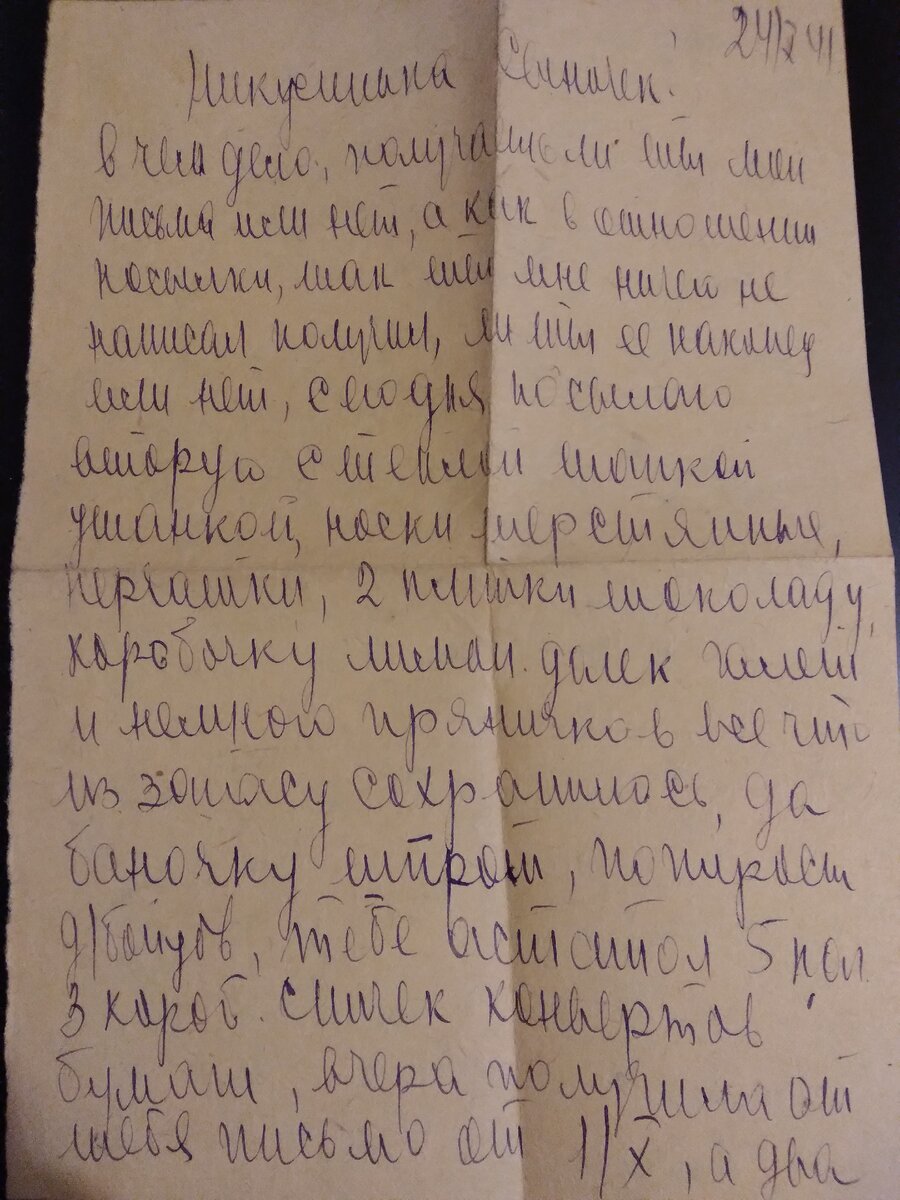 24/X 41
Никусишка Сынонек!
в чем дело, получаешь ли ты мои
письма или нет, а как в отношении
посылки, так ты мне ничего не
написал получил, ли ты ее наконец
или нет, сегодня посылаю
вторую с теплой шапкой
ушанкой, носки шерстянные,
перчатки, 2 плитки шоколаду,
коробочку лимон. долек галет
и немного пряничков все что
из запасу сохранилось, да
баночку шпрот, папиросы
д/бойцов, тебе 5 пол
3 короб. спичек конвертов
бумаги, вчера получила от
тебя письмо от 1/X, а два